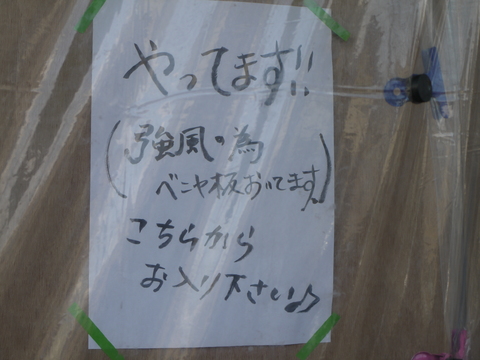 やってます!!
(強風の為
ベニヤ板おいてます。)
こちらから
お入り下さい♪